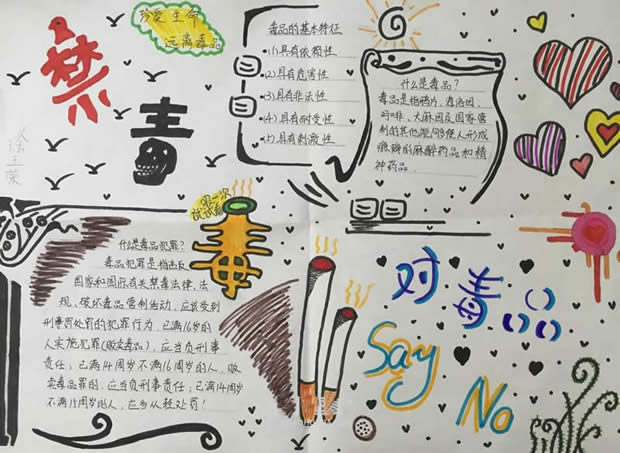 珍爱生命
远离毒品
禁毒
毒品的基本特征
(1)具有依赖性
(2)具有危害性
(3)具有非法性
(4)具有耐受性
(5)具有刺激性
什么是毒品?
毒品是指鸦片、海洛因、
吗啡、大麻因及国家管
制的其他能够使人形成
瘾癖的麻醉药品和精
神药品
徐玉荣
什么是毒品犯罪?
毒品犯罪是指违反
国家和国际有关禁毒法律、法
规、破坏毒品管制活动,应该受到
刑事罚处罚的犯罪行为,已满16岁的
人实施犯罪(贩卖毒品),应当负刑事
责任;已满14周岁不满16周岁的人,贩
卖毒品罪的,应当负刑事责任;已满14周岁
不满18周岁的人,应当从轻处罚!
毒
对毒品
Say
No